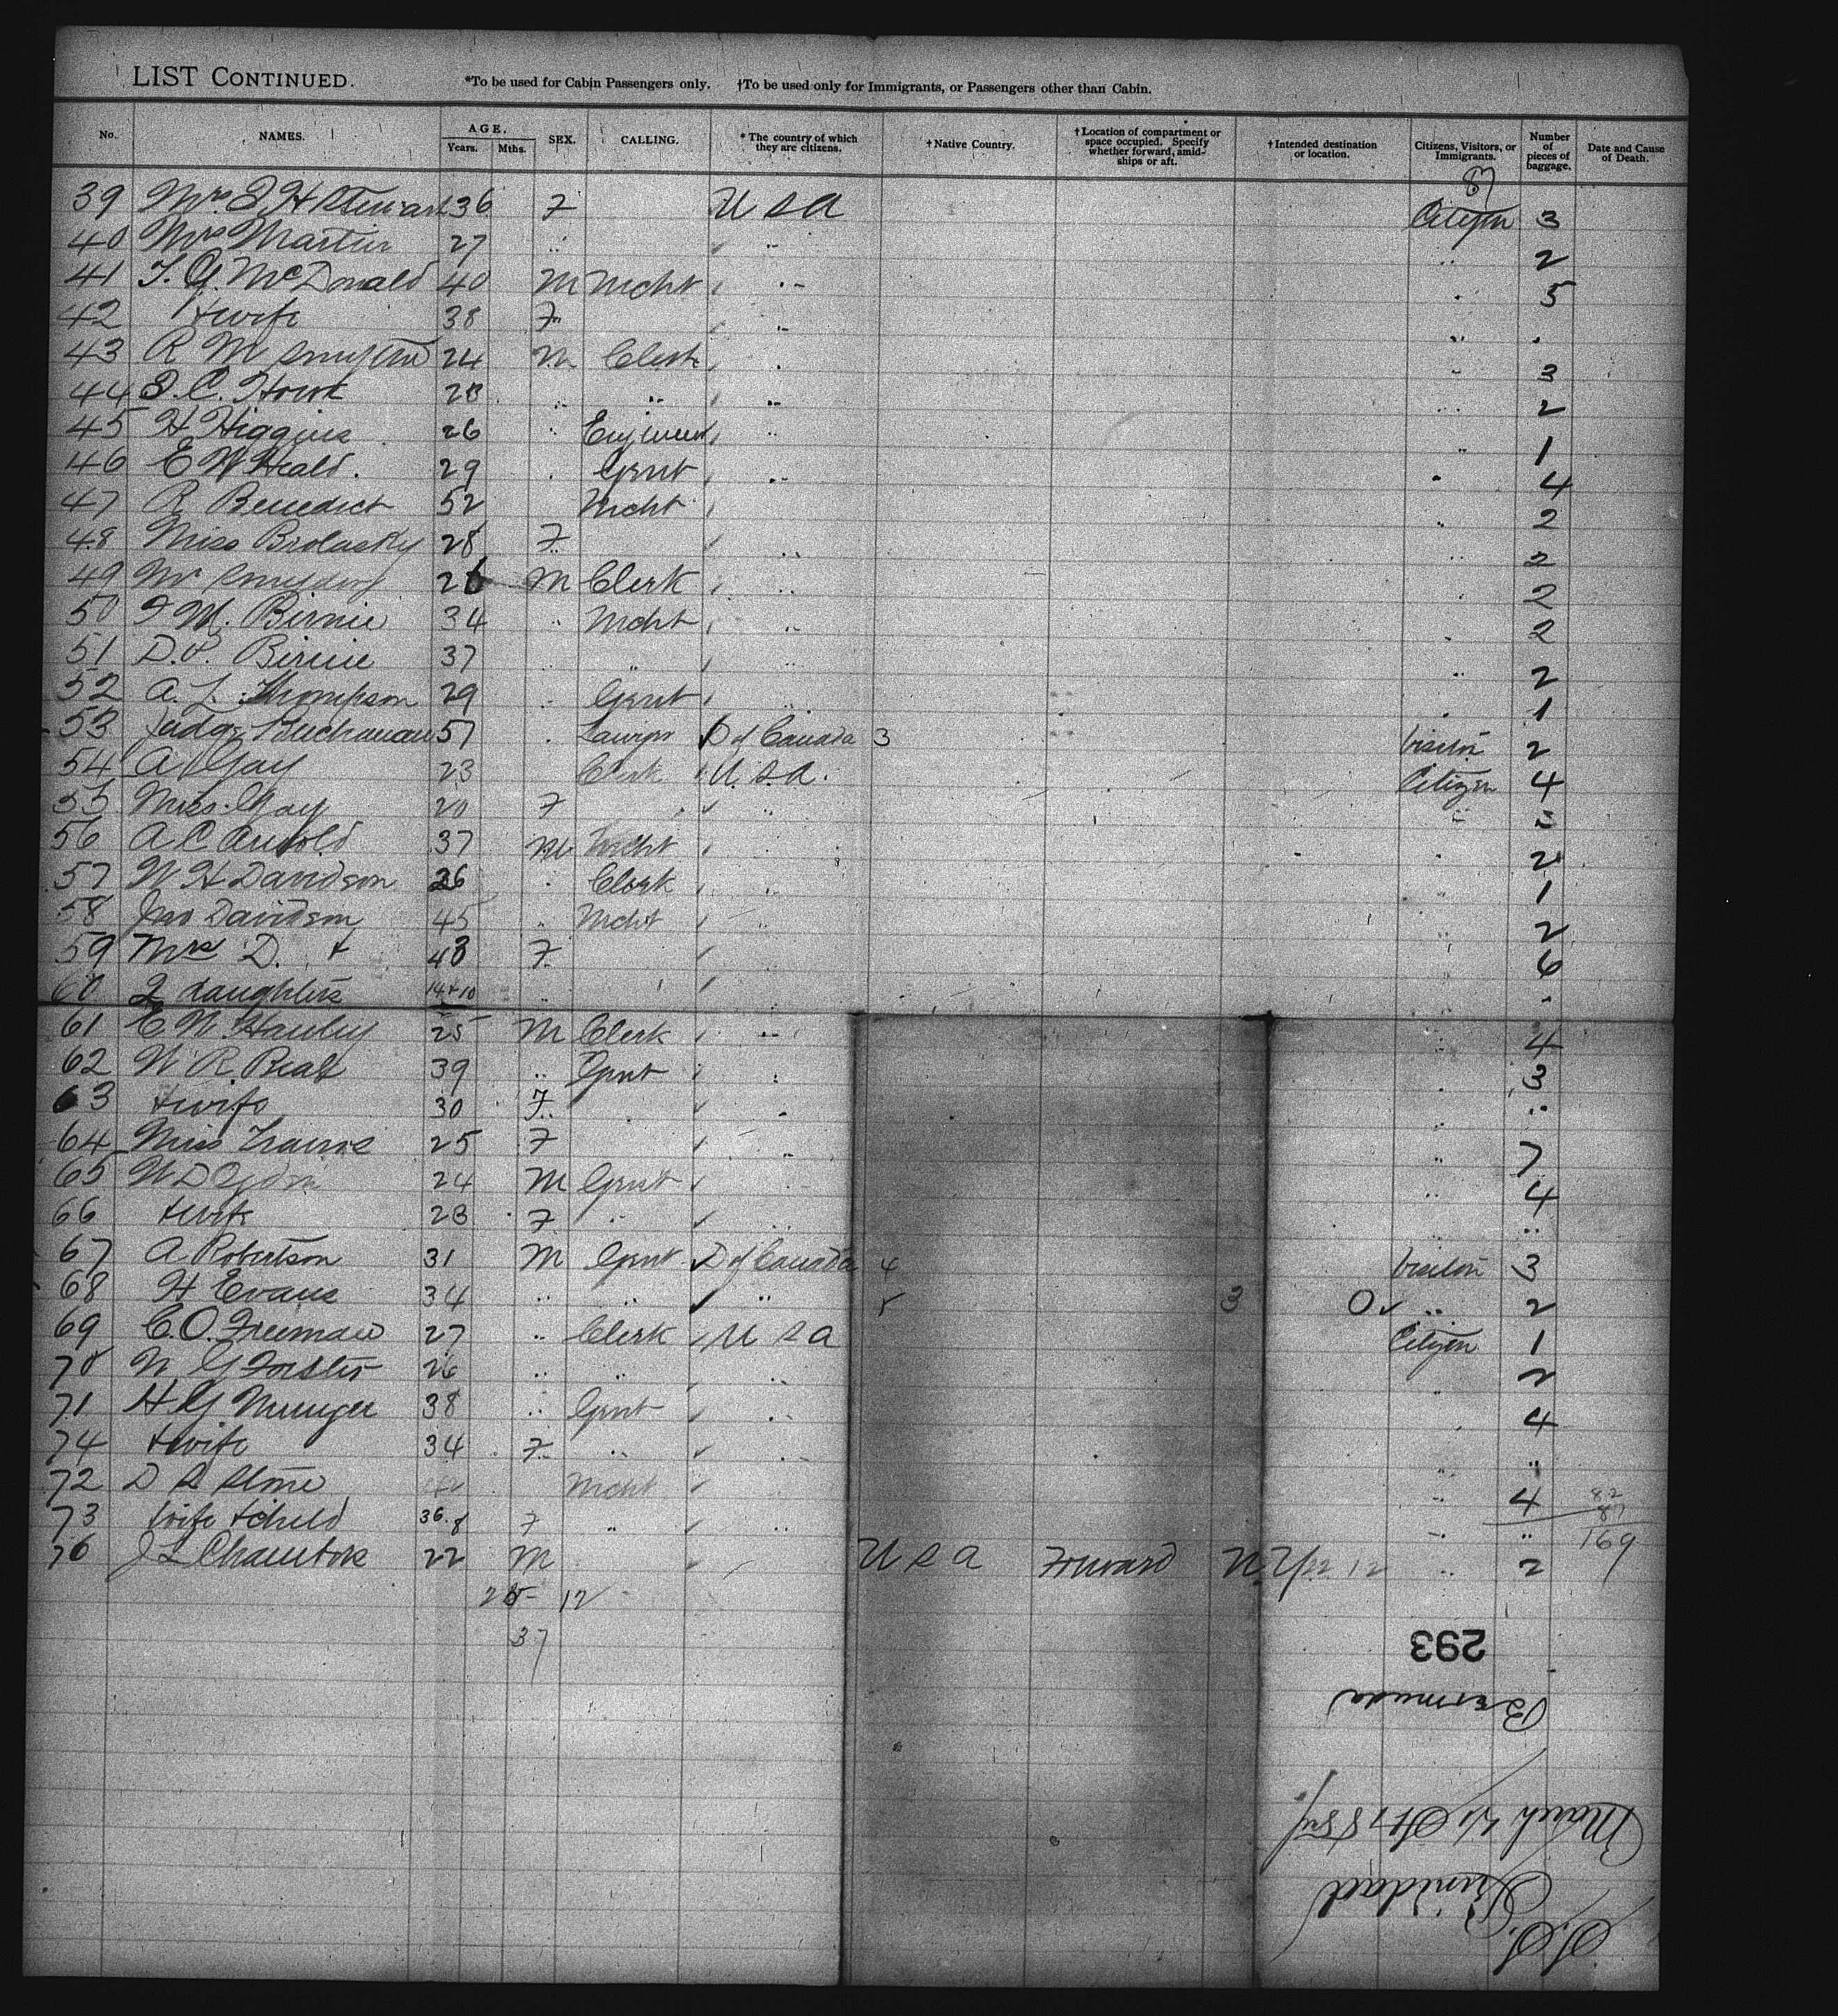 LIST CONTINUED. *To be used for Cabin Passengers only. †To be used only for Immigrants, or Passengers other than Cabin.
No. NAMES. AGE. Years. Mths. SEX. CALLING. * The country of which they are citizens. † Native Country. † Location of compartment or space occupied. Specify whether forward, amid-ships or aft. † Intended destination or location. Citizens, Visitors, or Immigrants. Number of pieces of baggage. Date and Cause of Death.
87
39 Mrs J H Stewart 36 F U S A Citizen 3
40 Mrs Martin 27 " " " 2
41 F. G. McDonald 40 M Mcht " " 5
42 + wife 38 F " " "
43 R M 24 M Clerk " " 3
44 C. 28 " " " " 2
45 H Higgins 26 " Engineer " " 1
46 E W Heald. 29 " Gent " " 4
47 R Benedict 52 Mcht " 2
48 Miss Brolasky 28 F " " 2
49 Mr M Clerk " " 2
50 M. Birnie 34 " Mcht " " 2
51 D. P. Birnie 37 " " " " 2
52 A. L. Thompson 29 " Gent " 1
53 Judge Buchanan 57 " Lawyer D of Canada 3 Visitor 2
54 A Gay 23 Clerk U. S. A. Citizen 4
55 Miss Gay 20 F " " "
56 A C Arnold 37 M Mcht " " 2
57 W H Davidson 26 " Clerk " " 1
58 Jno Davidson 45 " Mcht " " 2
59 Mrs D. + 43 F " " 6
60 2 daughters 14+10 " " "
61 E W Hanley 25 M Clerk " " 4
62 W R Beal 39 " Gent " " 3
63 + wife 30 F " " "
64 Miss Travis 25 F " " 7
65 W D 24 M Gent " " 4
66 + wife 23 F " " "
67 A Robertson 31 M Gent D of Canada 4 Visitor 3
68 H Evans 34 " " " 5 3 0 " 2
69 C. O. Freeman 27 " Clerk U S A Citizen 1
70 W G Forster 26 " " " " 2
71 H G Munger 38 " Gent " " 4
74 + wife 34 F " " " "
72 D S Stone Mcht " 4 82
73 wife + child 36. 8 F " " " " 87
169
76 J L 22 M U S A Forward N. Y 22 12 " 2
25 12
37
293
Bermuda
March
S. S. Trinidad